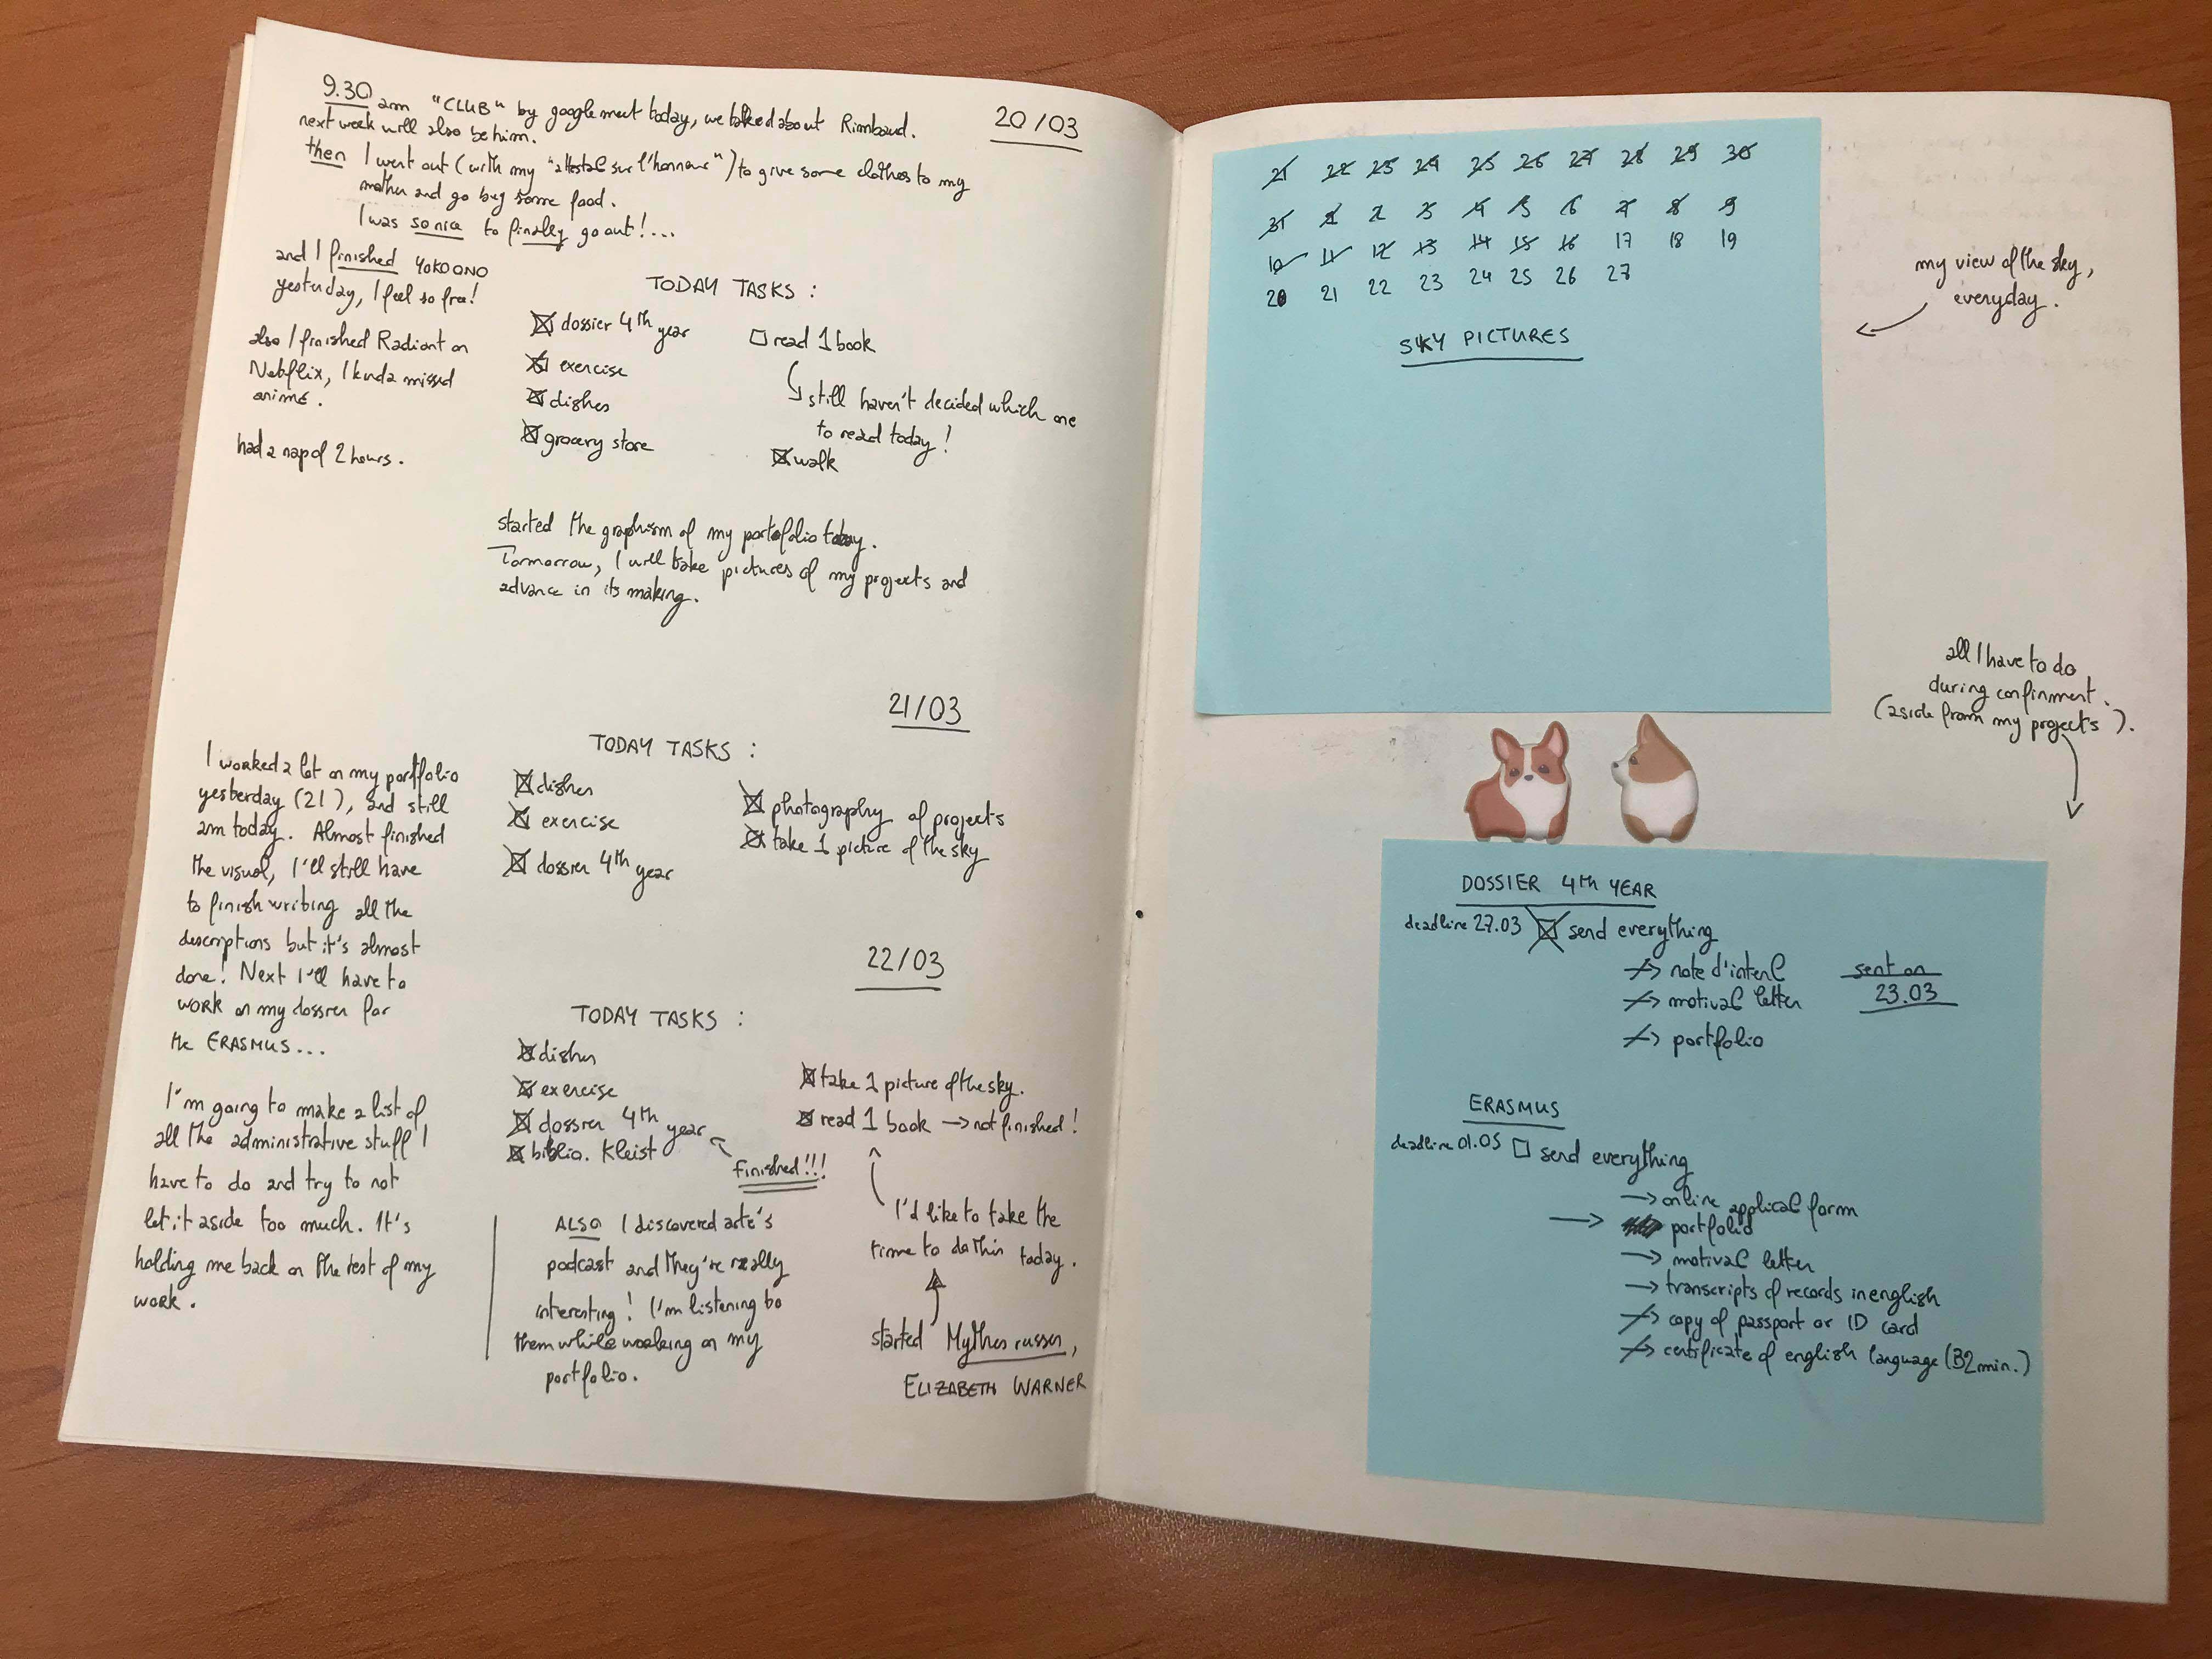 20/03
9.30 am "CLUB" by google meet today, we talked about Rimbaud.
next week will also be him.
then I went out (with my "attestaᑕ sur l'honneur") to give some clothes to my
mother and go buy some food.
I was so nice to finally go out!...
and I finished YOKO ONO
yesterday, I feel so free!
also I finished Radiant on
Netflix, I kinda missed
anime.
had a nap of 2 hours.
TODAY TASKS :
☒ dossier 4th year
☒ exercise
☒ dishes
☒ grocery store
☐ read 1 book
↳ still haven't decided which one
to read today!
☒ walk
started the graphism of my portofolio today.
Tomorrow, I will take pictures of my projects and
advance in its making.
21/03
TODAY TASKS :
☒ dishes
☒ exercise
☒ dossier 4th year
☒ photography of projects
☒ take 1 picture of the sky
I worked a lot on my portfolio
yesterday (21), and still
am today. Almost finished
the visual, I'll still have
to finish writing all the
descriptions but it's almost
done! Next I'll have to
work on my dossier for
the ERASMUS...
I'm going to make a list of
all the administrative stuff I
have to do and try to not
let it aside too much. It's
holding me back on the rest of my
work.
22/03
TODAY TASKS :
☒ dishes
☒ exercise
☒ dossier 4th year
finished!!!
☒ biblio. Kleist
☒ take 1 picture of the sky.
☒ read 1 book → not finished!
I'd like to take the
time to do this today.
started Mythes russes,
ELIZABETH WARNER
ALSO I discovered arte's
podcast and they're really
interesting! I'm listening to
them while working on my
portfolio.
21 22 23 24 25 26 27 28 29 30
31 1 2 3 4 5 6 7 8 9
10 11 12 13 14 15 16 17 18 19
20 21 22 23 24 25 26 27
SKY PICTURES
my view of the sky,
everyday.
all I have to do
during confinment.
(aside from my projects).
DOSSIER 4th YEAR
deadline 27.03 ☒ send everything
→ note d'intenᑕ
→ motivaᑕ letter
→ portfolio
sent on
23.03
ERASMUS
deadline 01.05 ☐ send everything
→ online applicaᑕ form
→ portfolio
→ motivaᑕ letter
→ transcripts of records in english
→ copy of passport or ID card
→ certificate of english language (B2 min.)